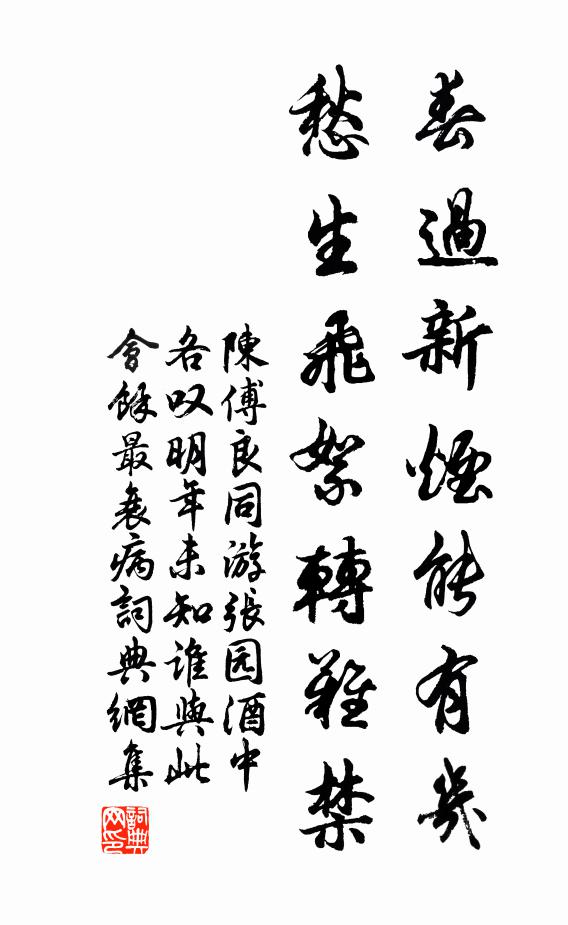 春過新煙能有幾
愁生飛絮轉難禁
陳傅良同游張园酒中
各叹明年未知誰與此
會餘最衰病詞典網集
詞典网印